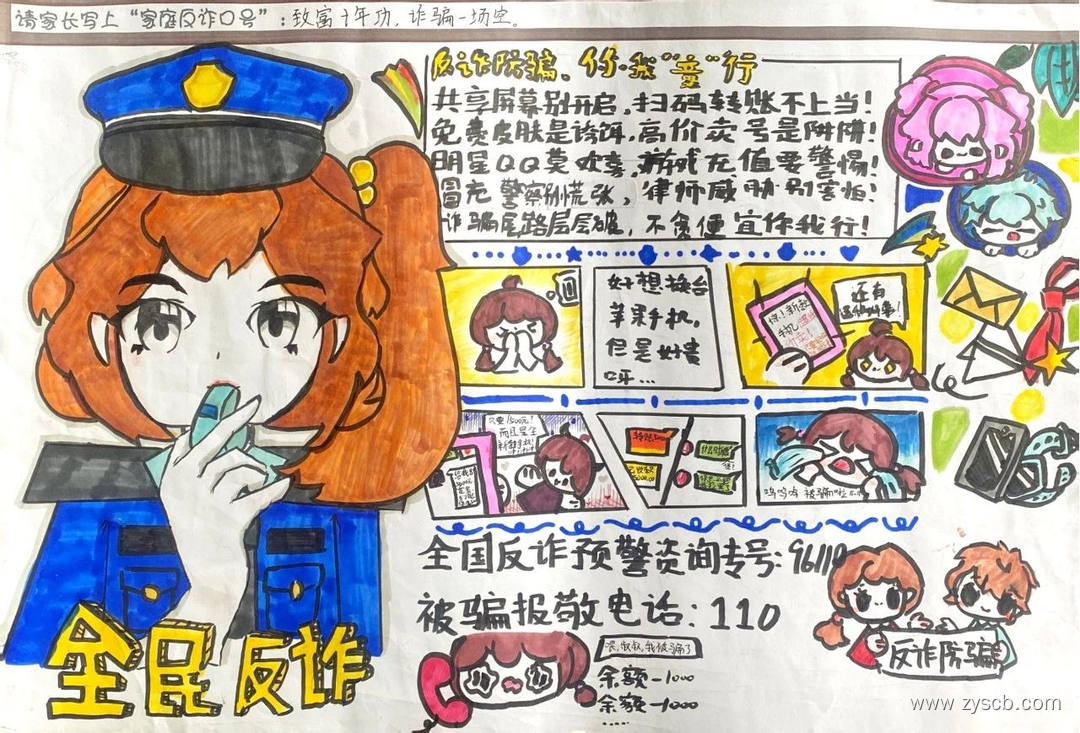 请家长写上“家庭反诈口号”：致富十年功，诈骗一场空。
反诈防骗、你我“童”行
共享屏幕别开启，扫码转账不上当！
免费皮肤是诱饵，高价卖号是陷阱！
明星QQ莫欢喜，游戏充值要警惕！
冒充警察别慌张，律师威胁别害怕！
诈骗尾路层层破，不贪便宜你我行！
好想换台
苹果手机，
但是好贵
呀...
还有
只要1500元！
而且是全
新苹果手机！
呜呜呜 被骗啦
全国反诈预警咨询专号：96110
被骗报警电话：110
喂，叔叔，我被骗了
余额-1000
余额-1000
.....
全民反诈
反诈防骗
www.zyscb.com